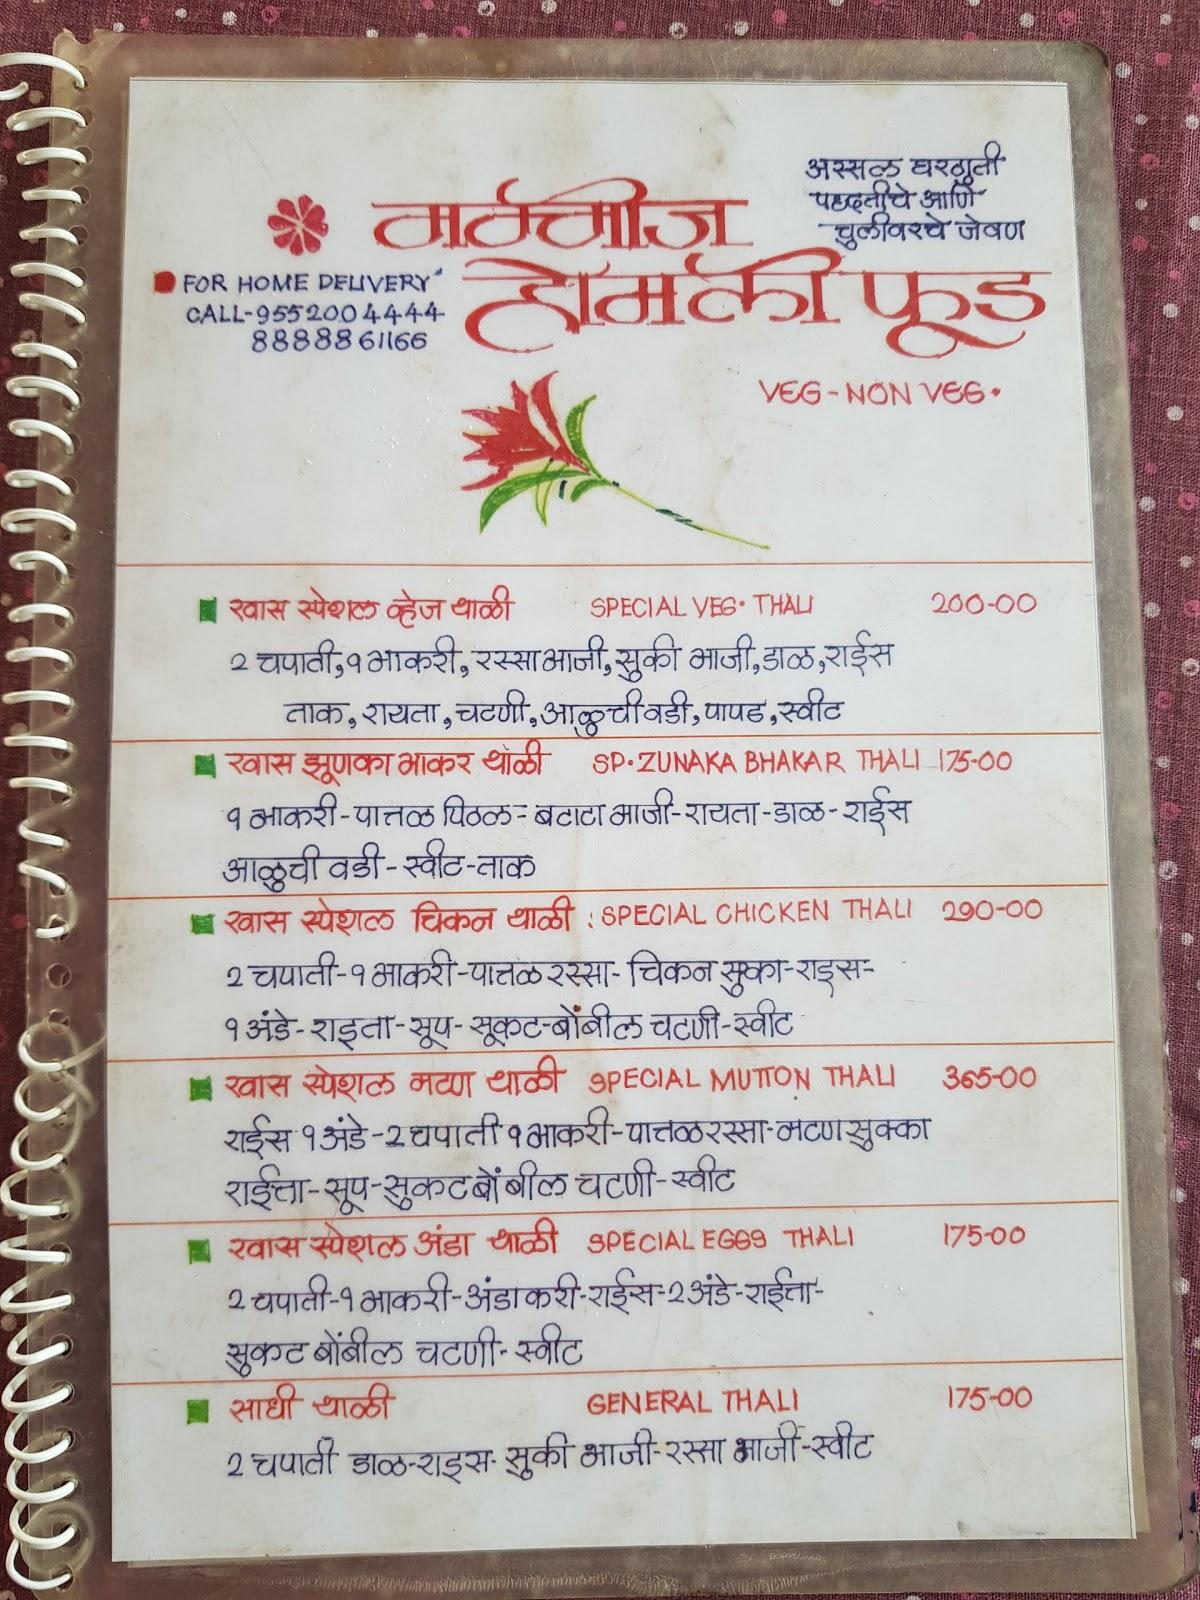 अस्सल घरगुती
पध्दतीचे आणि
चुलीवरचे जेवण
मम्मीज
होमली फूड
FOR HOME DELIVERY
CALL-9552004444
8888861166
VEG-NON VEG.
खास स्पेशल व्हेज थाळी SPECIAL VEG. THALI 200-00
2 चपाती, १ भाकरी, रस्साभाजी, सुकी भाजी, डाळ, राईस
ताक, रायता, चटणी, आळुची वडी, पापड, स्वीट
खास झूणका भाकर थाळी SP. ZUNAKA BHAKAR THALI 175-00
१ भाकरी-पात्तळ पिठल-बटाटा भाजी-रायता-डाळ-राईस
आळुची वडी-स्वीट-ताक
खास स्पेशल चिकन थाळी : SPECIAL CHICKEN THALI 290-00
2 चपाती-१ भाकरी-पात्तळ रस्सा-चिकन सुका-राइस-
१ अंडे-राइता-सूप-सूकट-बोंबील चटणी-स्वीट
खास स्पेशल मटण थाळी SPECIAL MUTTON THALI 365-00
राईस १ अंडे-2 चपाती १ भाकरी-पात्तळ रस्सा-मटण सुक्का
राईत्ता-सूप-सुकट बोंबील चटणी-स्वीट
खास स्पेशल अंडा थाळी SPECIAL EGGS THALI 175-00
2 चपाती-१ भाकरी-अंडा करी-राईस-2 अंडे-राईत्ता-
सुकट बोंबील चटणी-स्वीट
साधी थाळी GENERAL THALI 175-00
2 चपाती डाळ-राइस-सुकी भाजी-रस्सा भाजी-स्वीट